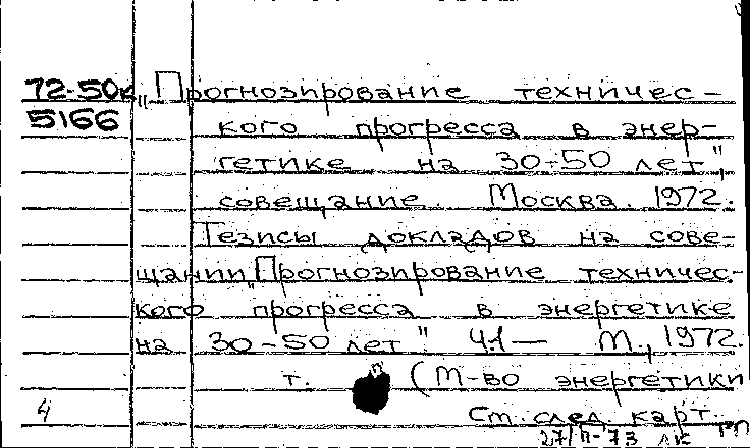 72-50к „Прогнозирование техничес-
5166 кого прогресса в энер-
гетике на 30-50 лет",
совещание. Москва. 1972.
Тезисы докладов на сове-
щании „Прогнозирование техничес-
кого прогресса в энергетике
на 30-50 лет". Ч.1— М., 1972.
т. (М-во энергетики
4 См. след. карт.
27/II-73 лк